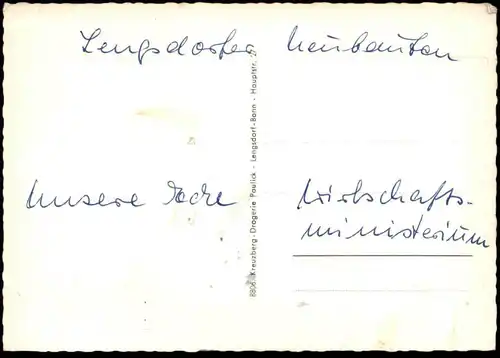 Lengsdorfer Neubauten
Unsere Ecke
Wirtschafts-
ministerium
8806 Kreuzberg-Drogerie Paulick - Lengsdorf-Bonn - Hauptstr.